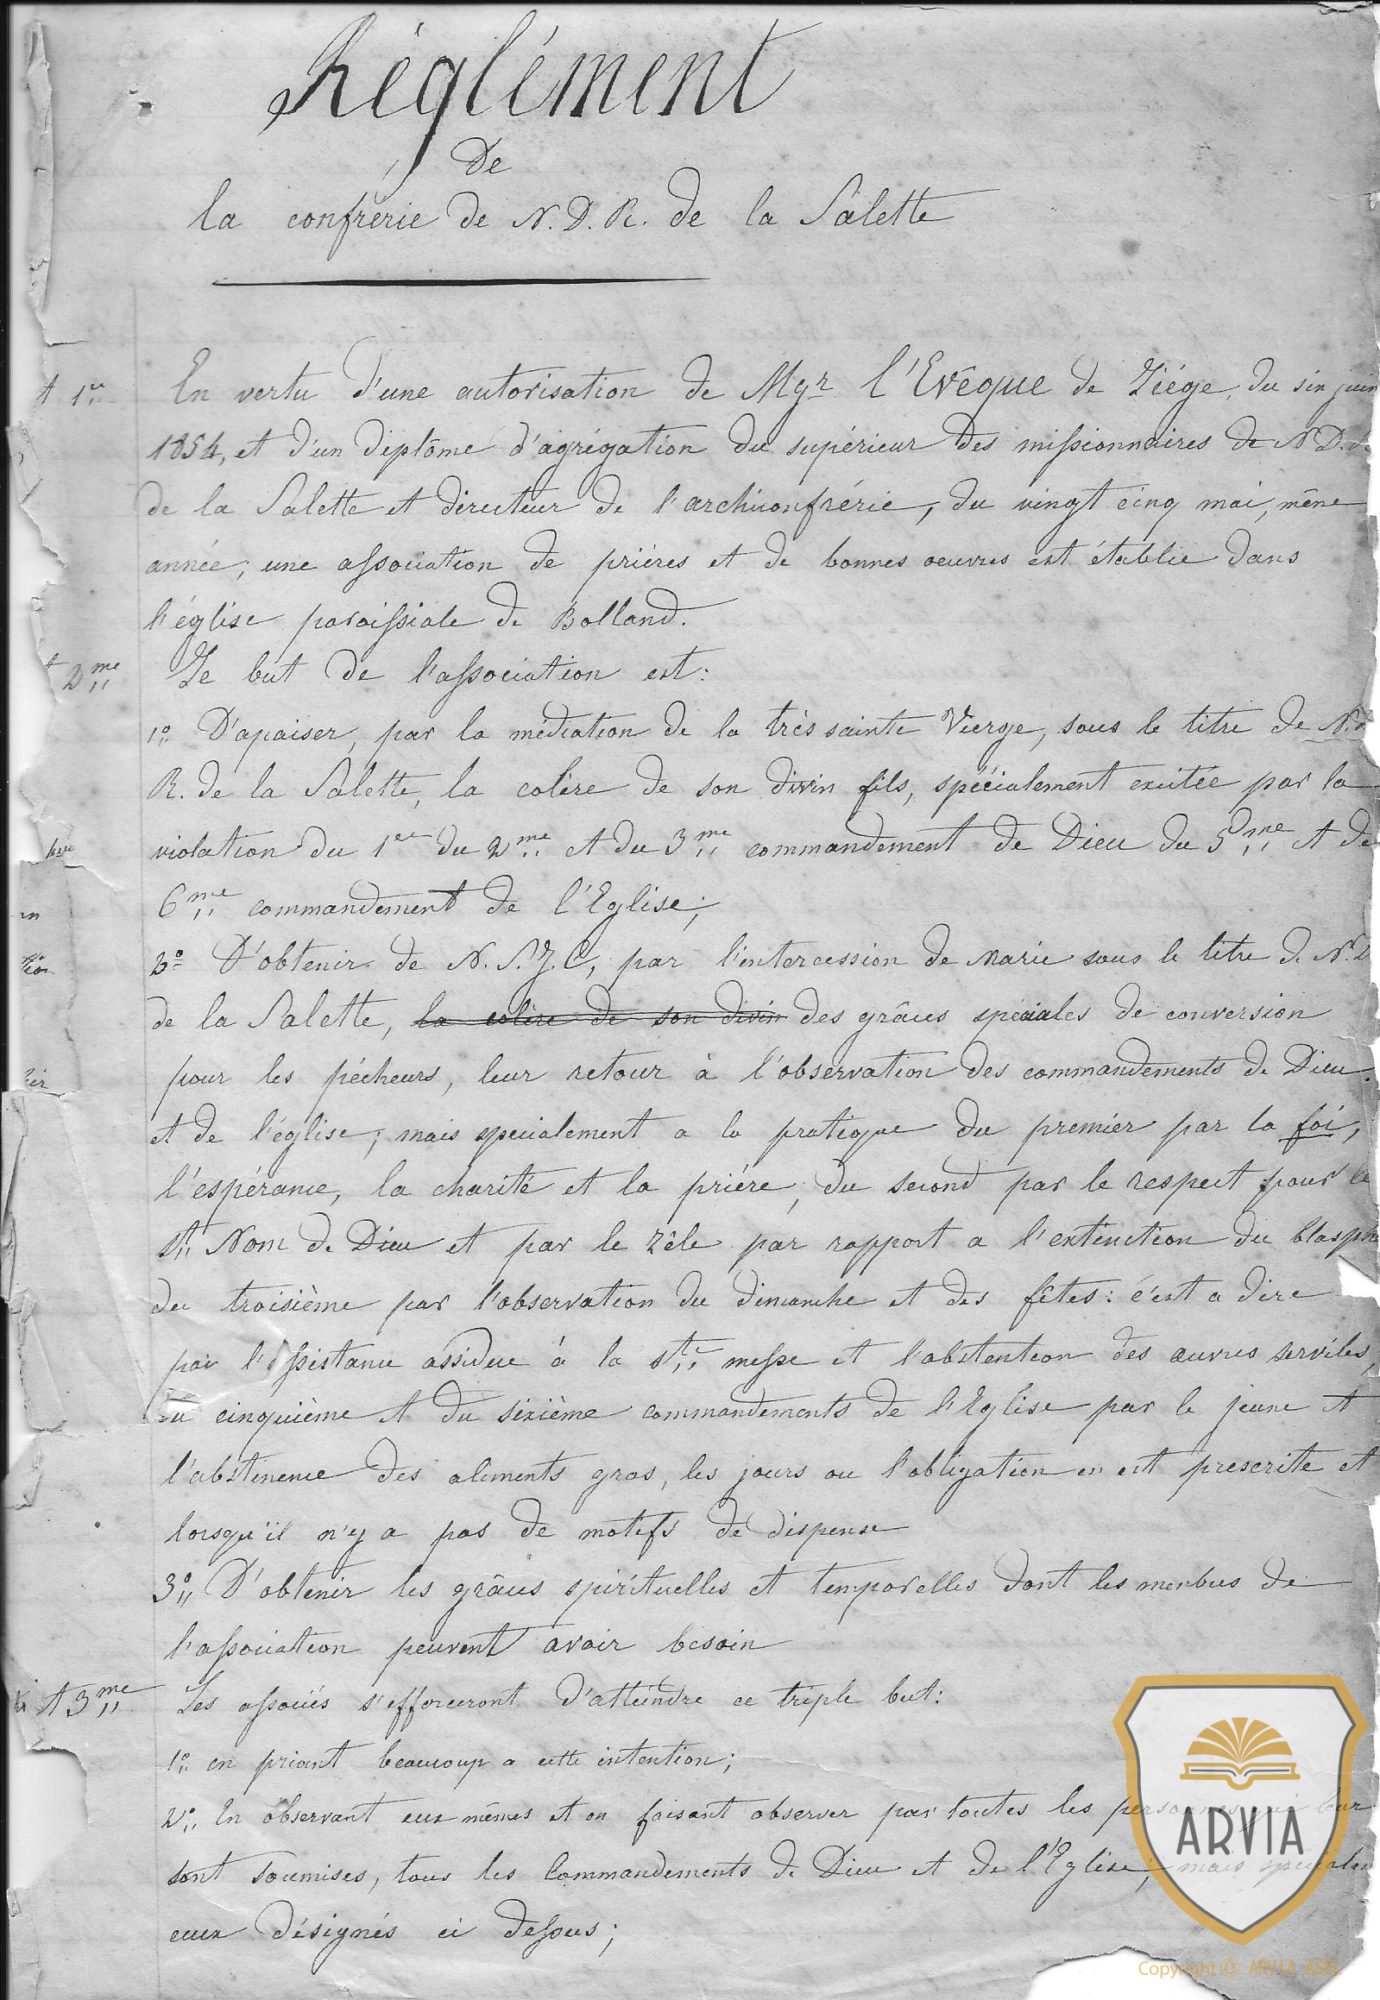 Réglément
De
la confrérie de N. D. R. de la Salette
t 1er En vertu d'une autorisation de Mgr l'Evêque de Liége, du six juin
1854, et d'un diplôme d'agrégation du supérieur des missionnaires de N D.
de la Salette et directeur de l'archiconfrérie, du vingt cinq mai, même
année, une association de priéres et de bonnes oeuvres est établie dans
l'église paroissiale de Bolland.
t 2me Le but de l'association est:
1° D'apaiser, par la médiation de la très sainte Vierge, sous le titre de N.
R. de la Salette, la colère de son divin fils, spécialement excitée par la
violation du 1er du 2me et du 3me commandement de Dieu du 5me et de
6me commandement de l'Eglise;
2° D'obtenir de N. S. J. C, par l'intercession de Marie sous le titre de N. D
de la Salette, la colère de son divin des grâces spéciales de conversion
pour les pécheurs, leur retour à l'observation des commandements de Dieu
et de l'église, mais specialement a la pratique du premier par la foi,
l'espérance, la charité et la priére, du second par le respect pour le
st Nom de Dieu et par le zêle par rapport a l'extinction du blasph
du troisième par l'observation du dimanche et des fêtes: c'est a dire
par l'assistance assidue à la ste messe et l'abstention des œuvres serviles,
du cinquième et du sixième commandements de l'Eglise par le jeune et
l'abstinence des aliments gras, les jours ou l'obligation en est prescrite et
lorsqu'il n'y a pas de motifs de dispense
3° D'obtenir les grâces spirituelles et temporelles dont les membres de
l'association peuvent avoir besoin
t 3me Les associés s'efforceront d'atteindre ce triple but:
1° en priant beaucoup a cette intention;
2° En observant eux mêmes et en faisant observer par toutes les personnes qui leur
sont soumises, tous les Commandements de Dieu et de l'Eglise, mais specialem
ceux désignés ci dessus;
ARVIA
Copyright © ARVIA ASBL